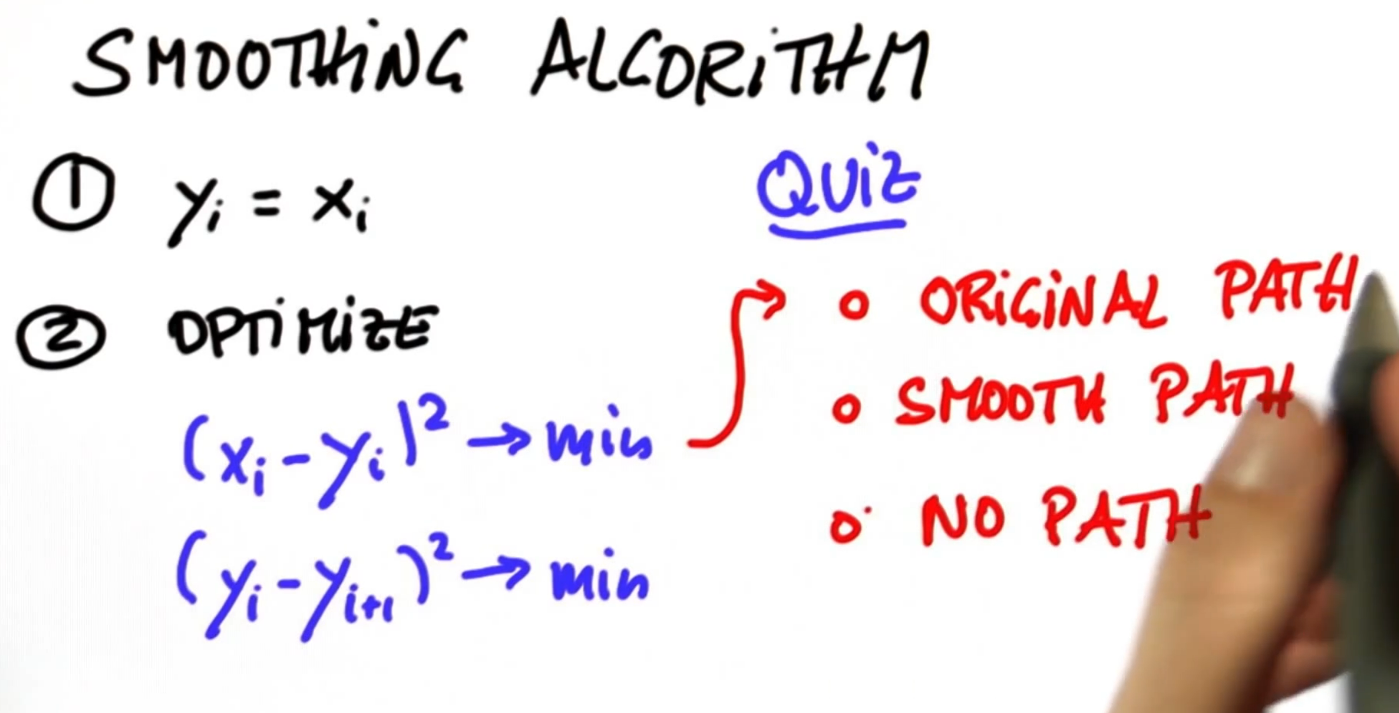 SMOOTHING ALGORITHM
① yᵢ = xᵢ
② OPTIMIZE
(xᵢ - yᵢ)² → min
(yᵢ - yᵢ₊₁)² → min
QUIZ
○ ORIGINAL PATH
○ SMOOTH PATH
○ NO PATH